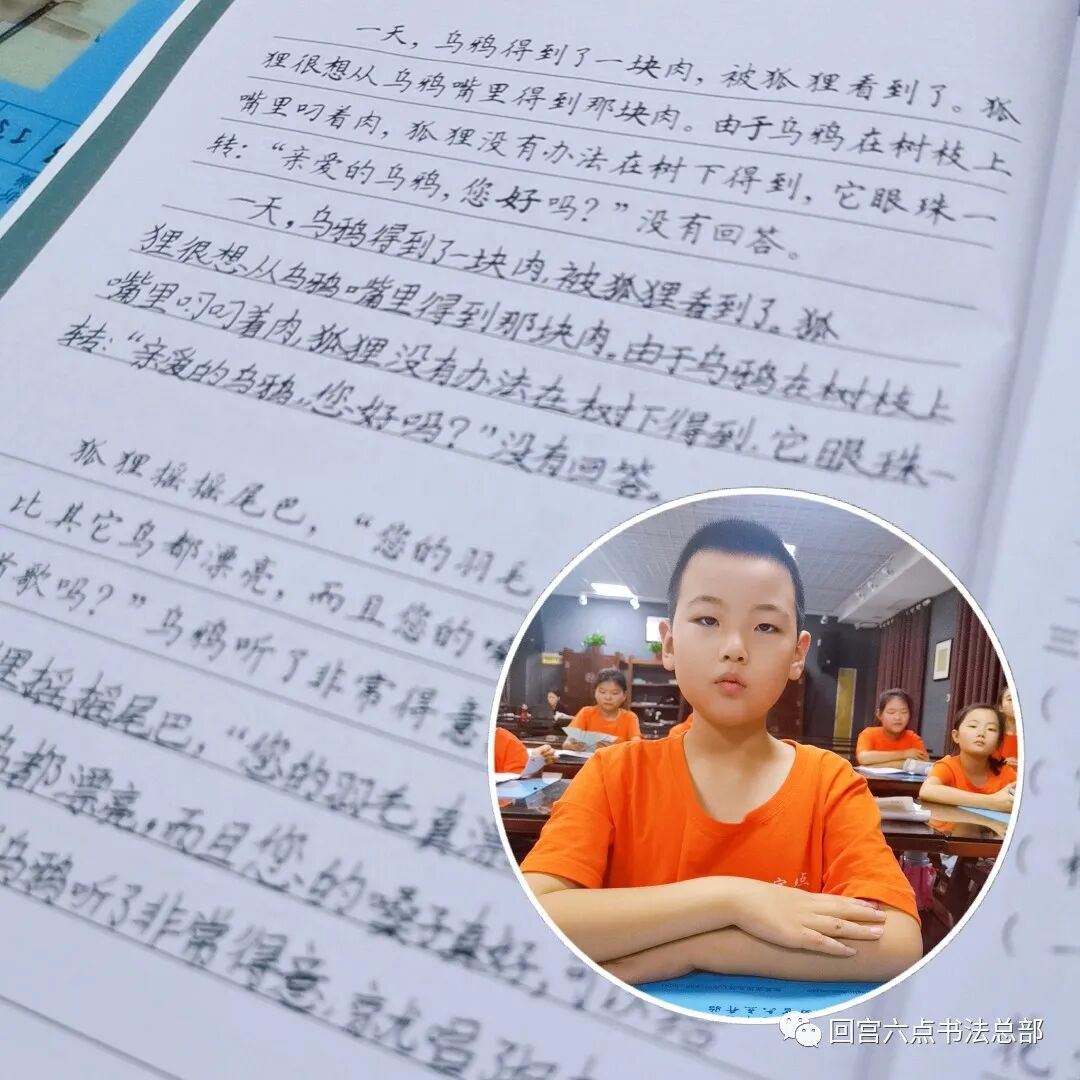 一天，乌鸦得到了一块肉，被狐狸看到了。狐
狸很想从乌鸦嘴里得到那块肉。由于乌鸦在树枝上
嘴里叼着肉，狐狸没有办法在树下得到，它眼珠一
转：“亲爱的乌鸦，您好吗？”没有回答。
一天，乌鸦得到了一块肉，被狐狸看到了。狐
狸很想从乌鸦嘴里得到那块肉。由于乌鸦在树枝上
嘴里叼叼着肉，狐狸没有办法在树下得到，它眼珠一
转：“亲爱的乌鸦，您好吗？”没有回答。
狐狸摇摇尾巴，“您的羽毛
比其它鸟都漂亮，而且您的嗓
歌吗？”乌鸦听了非常得意
狸摇摇尾巴，“您的羽毛真漂
鸟都漂亮，而且您的嗓子真好，可以给
乌鸦听了非常得意，就唱
回宫六点书法总部